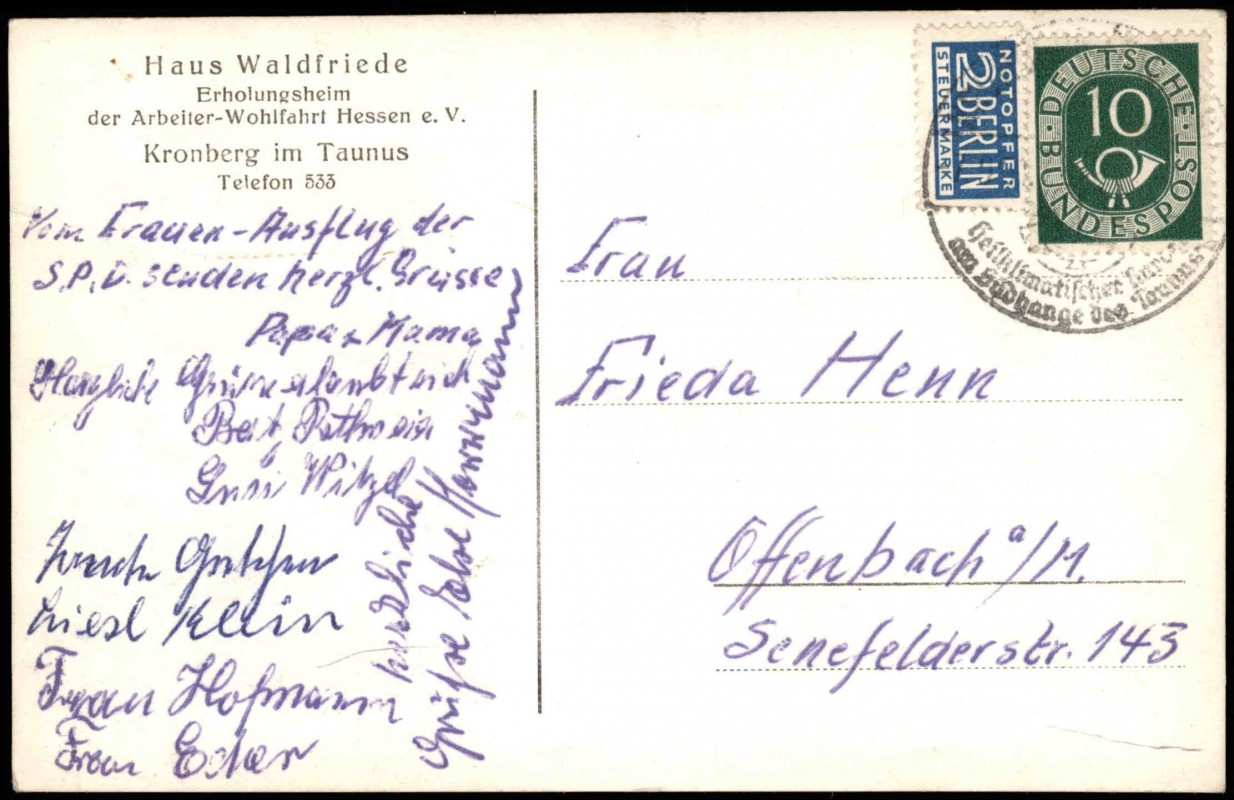 Haus Waldfriede
Erholungsheim
der Arbeiter-Wohlfahrt Hessen e. V.
Kronberg im Taunus
Telefon 533
Vom Frauen-Ausflug der
S.P.D. senden herzl. Grüsse
Papa + Mama
Herzliche Grüsse erlaubt sich
Witzel
Liesl Klein
Frau Hofmann
Frau Ecker
herzliche
Grüße
NOTOPFER
2 BERLIN
STEUERMARKE
DEUTSCHE
10
BUNDESPOST
Heilklimatischer
am Südhange des Taunus
Frau
Frieda Henn
Offenbach a/M.
Senefelderstr. 143